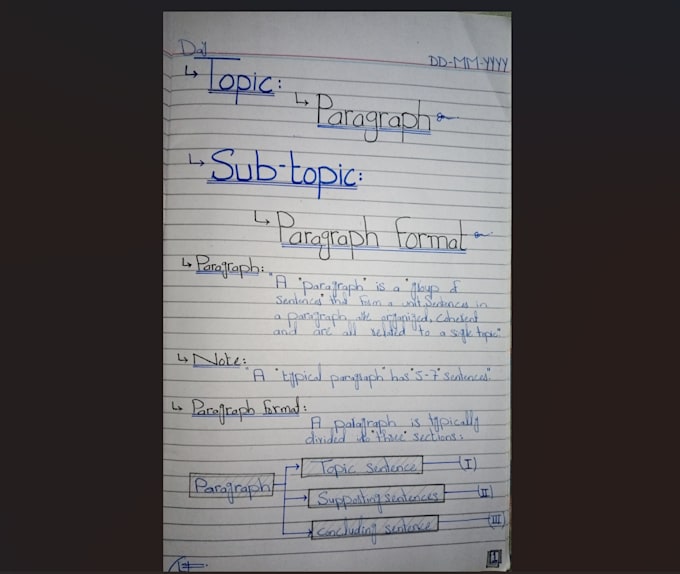 Day
DD-MM-YYYY
↳ Topic:
↳ Paragraph
↳ Sub-topic:
↳ Paragraph format
↳ Paragraph:
"A "paragraph" is a "group of
sentences" that form a unit. Sentences in
a paragraph are organized, coherent
and are all related to a single topic."
↳ Note:
"A "typical paragraph" has "5-7" sentences".
↳ Paragraph format:
A paragraph is typically
divided into "three" sections:
Topic sentence (I)
Paragraph
Supporting sentences (II)
concluding sentence (III)
1